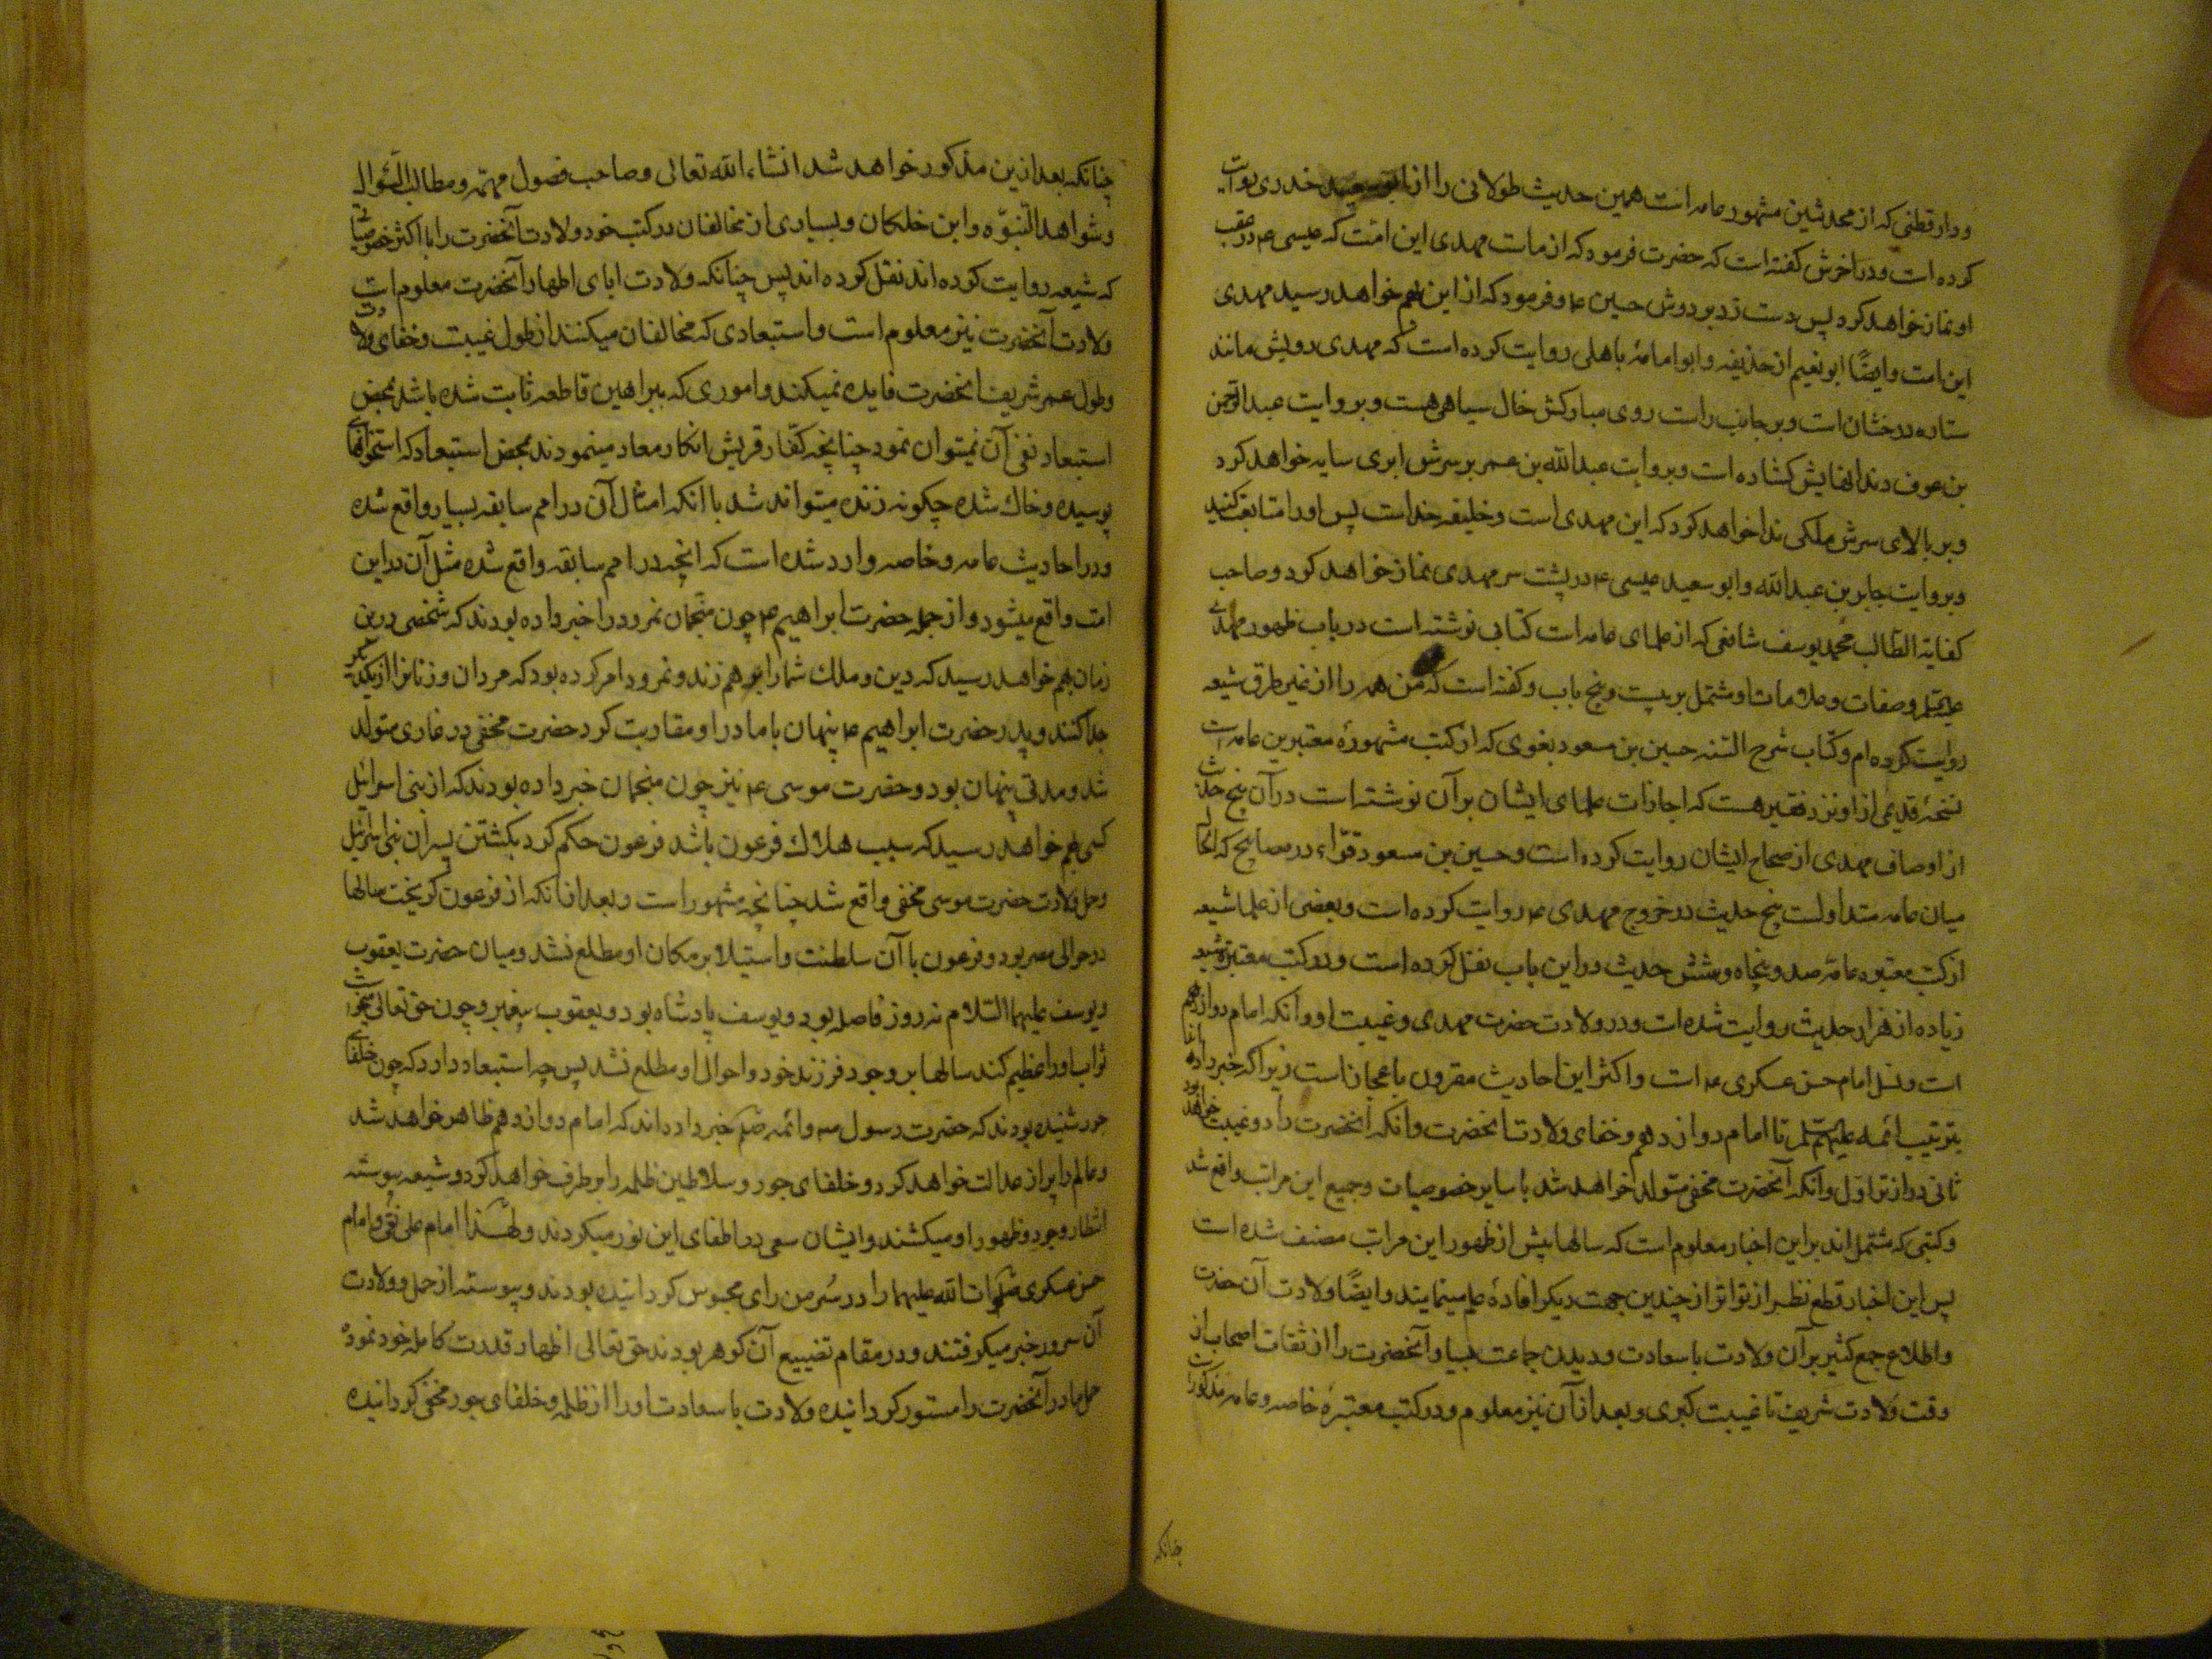 ودارقطنی که از محدثین مشهور عامه است همین حدیث طولانی را از ابوسعید خدری روایت
کرده است ودر آخرش گفته است که حضرت فرمود که از ماست مهدی این امت که عیسی ع در عقب
او نماز خواهد کرد پس دست زد بر دوش حسین ع وفرمود که از این بهم خواهد رسید مهدی
این امت وایضًا ابو نعیم از حذیفه وابو امامهٔ باهلی روایت کرده است که مهدی رویش مانند
ستاره درخشان است وبر جانب راست روی مبارکش خال سیاهی هست وبروایت عبدالرحمن
بن عوف دندانهایش کشاده است وبروایت عبدالله بن عمر بر سرش ابری سایه خواهد کرد
وبر بالای سرش ملکی ندا خواهد کرد که این مهدی است وخلیفه خداست پس او را متابعت کنید
وبروایت جابر بن عبدالله وابو سعید عیسی ع در پشت سر مهدی نماز خواهد کرد وصاحب
کفایة الطالب محمد یوسف شافعی که از علمای عامه است کتابی نوشته است در باب ظهور مهدی
وصفات وعلامات او مشتمل بر بیست وپنج باب وکفته است که من همه را از غیر طرق شیعه
روایت کرده ام وکتاب شرح السنه حسین بن مسعود بغوی که از کتب مشهورهٔ معتبرین عامه است
نسخهٔ قدیمی از او نزد فقیر هست که اجازات علمای ایشان بر آن نوشته است در آن پنج حدیث
از اوصاف مهدی از صحاح ایشان روایت کرده است وحسین بن مسعود فرّاء در مصابیح که الحال
میان عامه متداولست پنج حدیث در خروج مهدی ع روایت کرده است وبعضی از علما شیعه
از کتب معتبره عامّه صد وپنجاه وشش حدیث در این باب نقل کرده است ودر کتب معتبرهٔ شیعه
زیاده از هزار حدیث روایت شده است ودر ولادت حضرت مهدی وغیبت او وانکه امام دوازدهم
است ونسل امام حسن عسکری ع است واکثر این احادیث مقرون باعجاز است زیرا که خبر داده اند
بترتیب ائمه علیهم السلم تا امام دوازدهم وخفای ولادت انحضرت وانکه انحضرت را دو غیبت خواهد بود
ثانی درازتر از اول وانکه آنحضرت مخفی متولد خواهد شد با سایر خصوصیات وجمیع این مراتب واقع شد
وکتبی که مشتمل اند بر این اخبار معلوم است که سالها پیش از ظهور این مراتب مصنف شده است
پس این اخبار قطع نظر از تواتر از چندین جهت دیگر افادهٔ علم مینمایند وایضًا ولادت آن حضرت
واطلاع جمع کثیر بر آن ولادت با سعادت ودیدن جماعت بسیار آنحضرت را از ثقات اصحاب از
وقت ولادت شریف تا غیبت کبری وبعد از آن نیز معلوم ودر کتب معتبرهٔ خاصه وعامه مذکور است
چنانکه
چنانکه بعد ازین مذکور خواهد شد انشاءالله تعالی وصاحب فصول مهمّه ومطالب السّؤال
وشواهد النّبوّه وابن خلکان وبسیاری از مخالفان در کتب خود ولادت آنحضرت را با اکثر خصوصیاتی
که شیعه روایت کرده اند نقل کرده اند پس چنانکه ولادت ابای اطهار آنحضرت معلوم است
ولادت آنحضرت نیز معلوم است واستبعادی که مخالفان میکنند از طول غیبت وخفای ولادت
وطول عمر شریف انحضرت فایده نمیکند واموری که ببراهین قاطعه ثابت شده باشد بمحض
استبعاد نفی آن نمیتوان نمود چنانچه کفّار قریش انکار معاد مینمودند بمحض استبعاد که استخوانهای
پوسیده وخاک شده چگونه زنده میتواند شد با انکه امثال آن در امم سابقه بسیار واقع شده
ودر احادیث عامه وخاصه وارد شده است که انچه در امم سابقه واقع شده مثل آن در این
امت واقع میشود واز جمله حضرت ابراهیم ع چون منجّمان نمرود را خبر داده بودند که شخصی درین
زمان بهم خواهد رسید که دین وملک شما را بر هم زند ونمرود امر کرده بود که مردان وزنانرا از یکدیگر
جدا کنند وپدر حضرت ابراهیم ع پنهان با مادر او مقاربت کرد حضرت مخفی در غاری متولد
شد ومدتی پنهان بود وحضرت موسی ع نیز چون منجمان خبر داده بودند که از بنی اسرائیل
کسی بهم خواهد رسید که سبب هلاک فرعون باشد فرعون حکم کرد بکشتن پسران بنی اسرائیل
وحمل وولادت حضرت موسی مخفی واقع شد چنانچه مشهور است وبعد از انکه از فرعون کریخت سالها
در حوالی مصر بود وفرعون با آن سلطنت واستیلا بر مکان او مطلع نشد ومیان حضرت یعقوب
ویوسف علیهما السّلام نه روز فاصله بود ویوسف پادشاه بود ویعقوب پیغمبر وچون حق تعالی میخواست
ثواب او را عظیم کند سالها بر وجود فرزند خود واحوال او مطلع نشد پس چه استبعاد دارد که چون خلفای
جور شنیده بودند که حضرت رسول ص وائمه خبر داده اند که امام دوازدهم ظاهر خواهد شد
وعالم را پر از عدالت خواهد کرد وخلفای جور وسلاطین ظلمه را بر طرف خواهد کرد وشیعه پیوسته
انتظار وجود وظهور او میکشند وایشان سعی در اطفای این نور میکردند ولهذا امام علی نقی وامام
حسن عسکری صلوات الله علیهما را در سُرّ من رای محبوس کردانیده بودند وپیوسته از حمل وولادت
آن سرور خبر میکرفتند ودر مقام تضییع آن کوهر بودند حق تعالی اظهار قدرت کامله خود نموده
حمل مادر آنحضرت را مستور کردانیده ولادت با سعادت او را از ظلمه وخلفای جور مخفی کردانیده